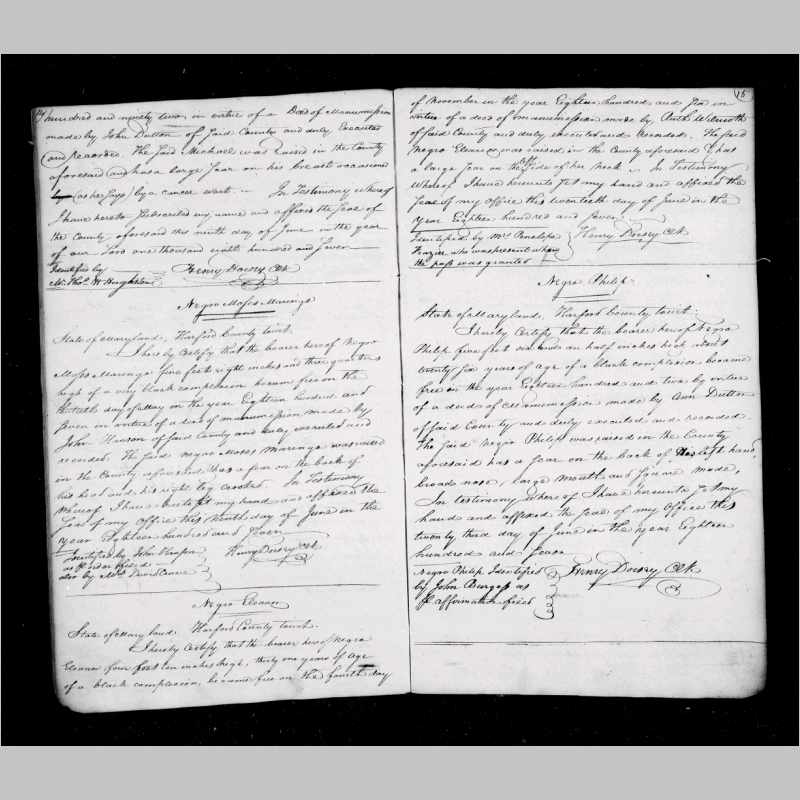 hundred and ninety two, in virtue of a Deed of Manumission
made by John Dutton of said County and duly Executed
and recorded. The said Michael was raised in the County
aforesaid and has a large Scar on his breast occasioned
by (as he says) by a cancer wart. In Testimony whereof
I have hereto Subscribed my name and affixed the Seal of
the County aforesaid this ninth day of June in the year
of our Lord one thousand eight hundred and Seven
Identified by
Henry Dorsey Clk
Mr. Thos.
Negro Moses Maringo
State of Maryland, Harford County Court.
I hereby Certify that the bearer hereof Negro
Moses Maringo five feet eight inches and three quarters
high of a very black complexion became free on the
day of May in the year Eighteen hundred and
Seven in virtue of a deed of manumission made by
John of said County and duly executed and
recorded. The said negro Moses Maringo was raised
in the County aforesaid has a scar on the back of
his head and his right leg crooked. In Testimony
whereof I have hereto set my hand and affixed the
Seal of my Office this day of June in the
year Eighteen hundred and Seven
Identified by John
as filed
Henry Dorsey Clk
also by Mr. David
Negro Eleanor
State of Maryland, Harford County Court.
I hereby Certify that the bearer hereof Negro
Eleanor four feet ten inches high, thirty one years of age
of a black complexion, became free on the fourth day
15
of November in the year Eighteen hundred and Six in
virtue of a deed of manumission made by Ruth
of said County and duly executed and recorded. The said
Negro Eleanor was raised in the County aforesaid & has
a large Scar on the left side of her neck. In Testimony
Whereof I have hereunto Set my hand and affixed the
Seal of my office this twentieth day of June in the
year Eighteen hundred and Seven.
Identified by Mrs. Penelope
Henry Dorsey Clk
who was present when
the pass was granted
Negro Philip
State of Maryland, Harford County Court:
I hereby Certify that the bearer hereof Negro
Philip five feet six and an half inches high about
twenty years of age of a black complexion became
free in the year Eighteen hundred and two by virtue
of a deed of Manumission made by Ann Dutton
of said County and duly executed and recorded.
The said Negro Philip was raised in the County
aforesaid has a scar on the back of his left hand
broad nose, large mouth and Square made,
In testimony Whereof I have hereunto Set my
hand and affixed the Seal of my Office this
twenty third day of June in the year Eighteen
hundred and Seven
Negro Philip Identified
Henry Dorsey Clk
by John Burgess as
affirmation filed